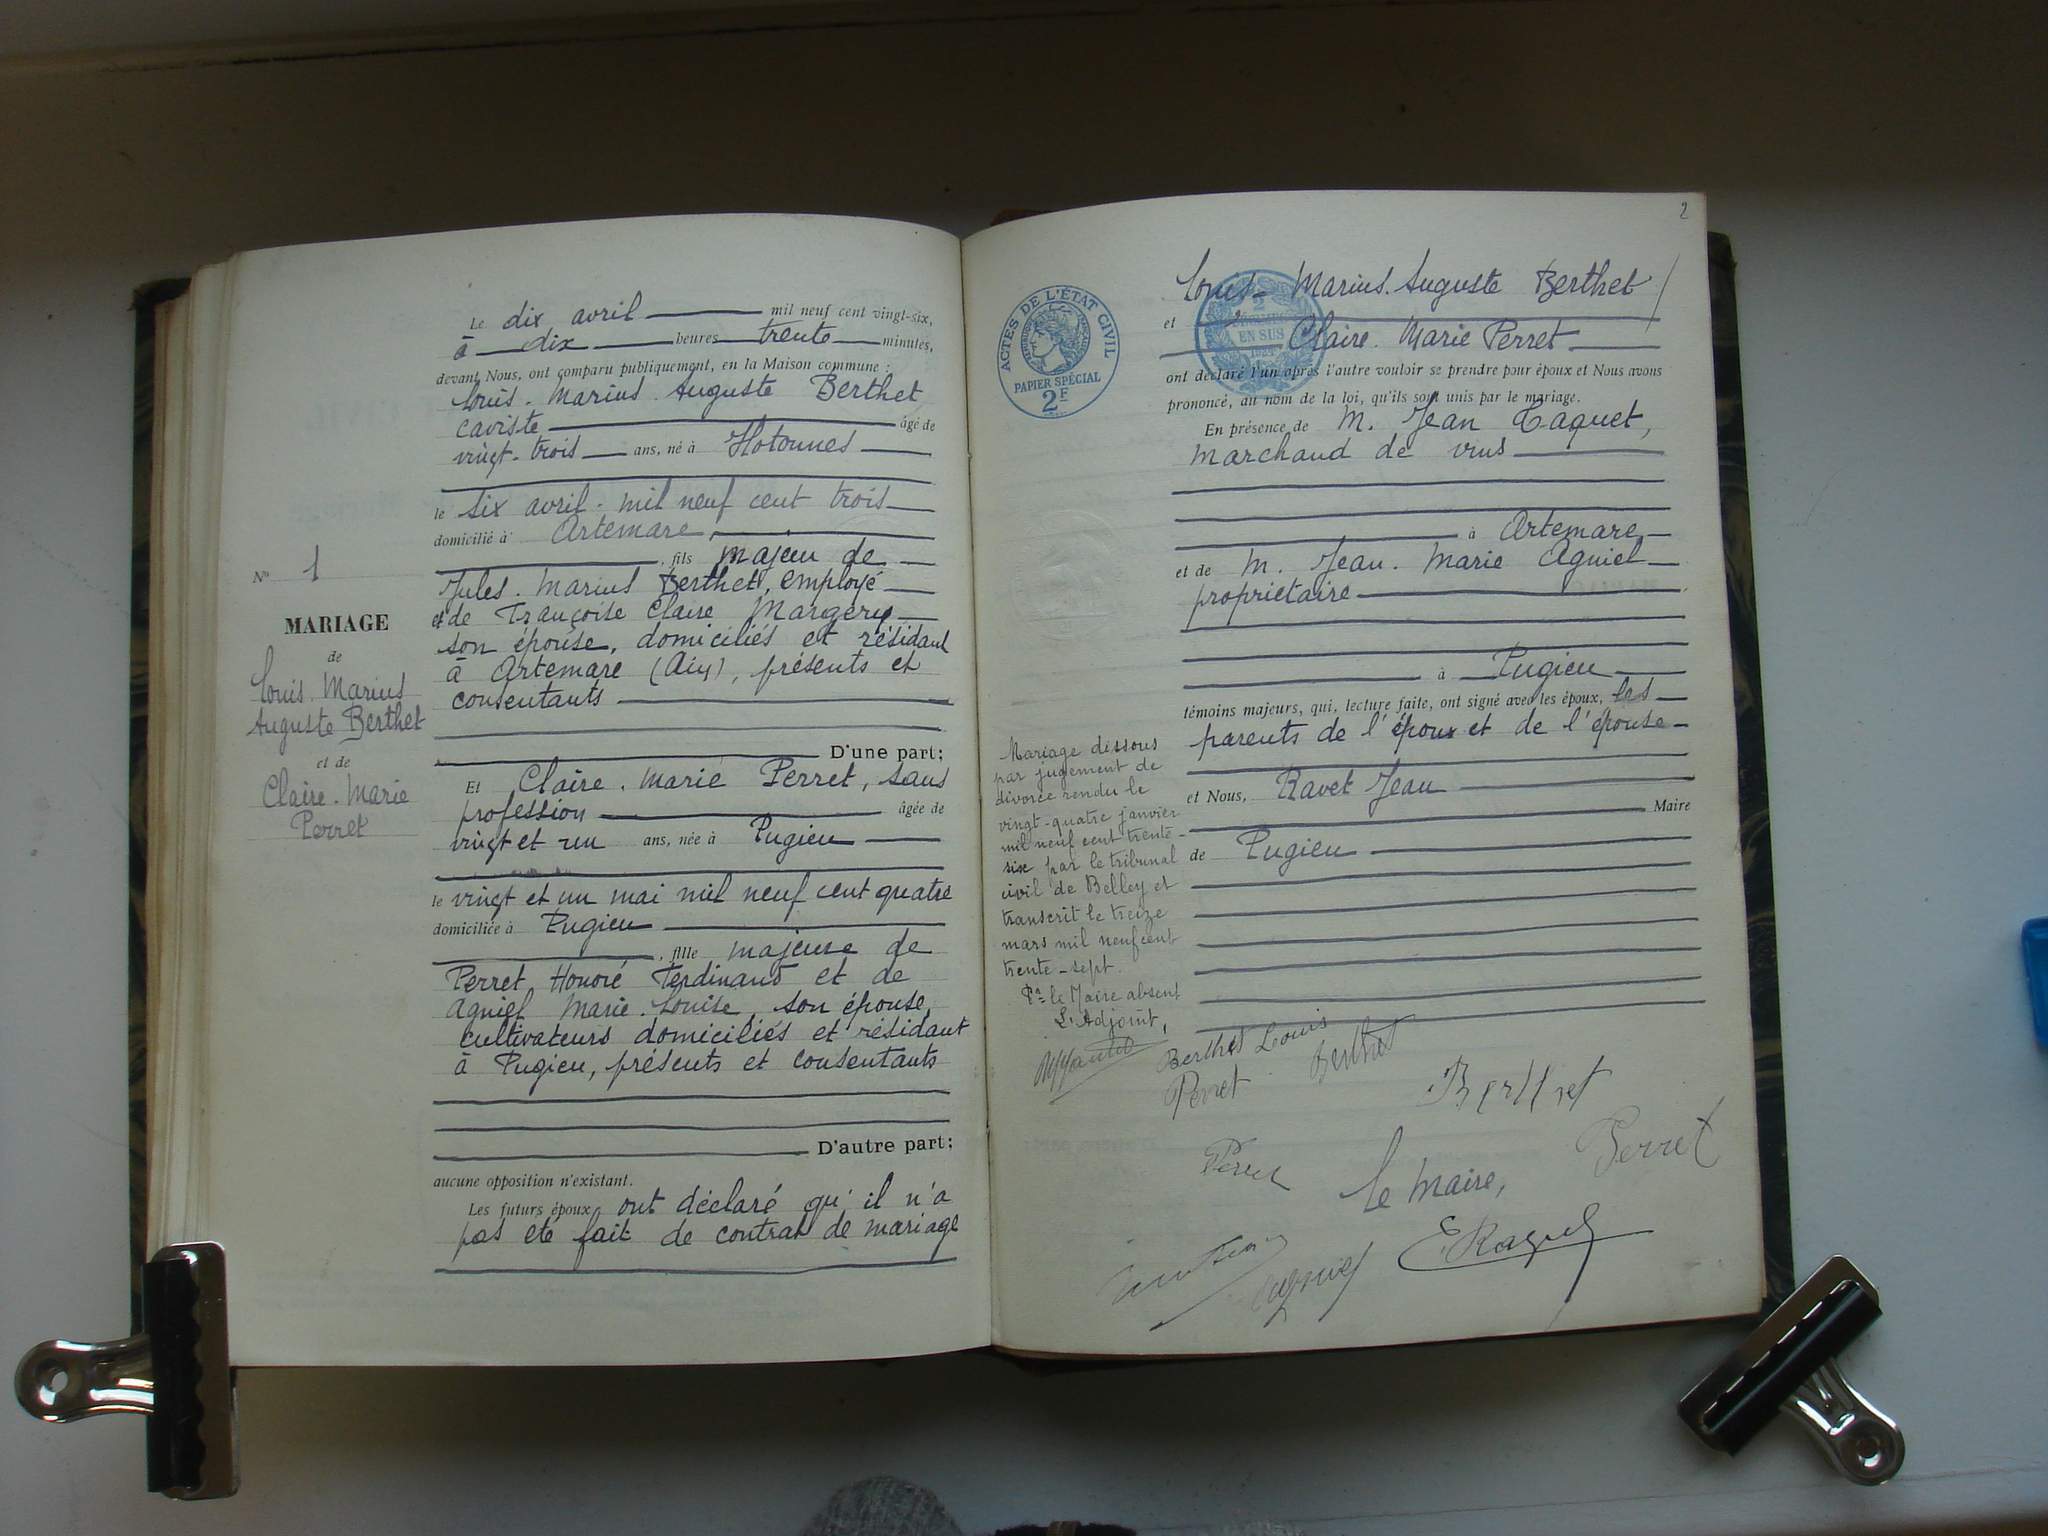 N° 1
MARIAGE
de
Louis. Marius
Auguste Berthet
et de
Claire. Marie
Perret
Le dix avril mil neuf cent vingt-six,
à dix heures trente minutes,
devant Nous, ont comparu publiquement, en la Maison commune :
Louis. Marius. Auguste Berthet
caviste âgé de
vingt-trois ans, né à Hotonnes
le six avril. mil neuf cent trois
domicilié à Artemare,
, fils majeur de
Jules. Marius Berthet, employé
et de Françoise Claire Margery
son épouse, domiciliés et résidant
à Artemare (Ain), présents et
consentants
D'une part;
Et Claire. Marie Perret, sans
profession âgée de
vingt et un ans, née à Pugieu
le vingt et un mai mil neuf cent quatre
domiciliée à Pugieu
, fille majeure de
Perret Honoré Ferdinand et de
Agniel Marie. Louise, son épouse,
cultivateurs domiciliés et résidant
à Pugieu, présents et consentants
D'autre part;
aucune opposition n'existant.
Les futurs époux ont déclaré qu'il n'a
pas été fait de contrat de mariage
2
ACTES DE L'ÉTAT CIVIL
PAPIER SPÉCIAL
2F
2
DÉCIMES
EN SUS
Louis. Marius. Auguste Berthet
et Claire. Marie Perret
ont déclaré l'un après l'autre vouloir se prendre pour époux et Nous avons
prononcé, au nom de la loi, qu'ils sont unis par le mariage.
En présence de M. Jean Taquet,
marchand de vins
à Artemare
et de M. Jean. Marie Agniel
propriétaire
à Pugieu
témoins majeurs, qui, lecture faite, ont signé avec les époux, les
parents de l'époux et de l'épouse
et Nous, Ravet Jean
Maire
de Pugieu
Mariage dissous
par jugement de
divorce rendu le
vingt-quatre janvier
mil neuf cent trente-
six par le tribunal
civil de Belley et
transcrit le treize
mars mil neuf cent
trente-sept.
Pr le Maire absent
L'Adjoint,
Berthet Louis
Berthet
Perret
Berthet
Perret
Perret
Le Maire,
Agniel